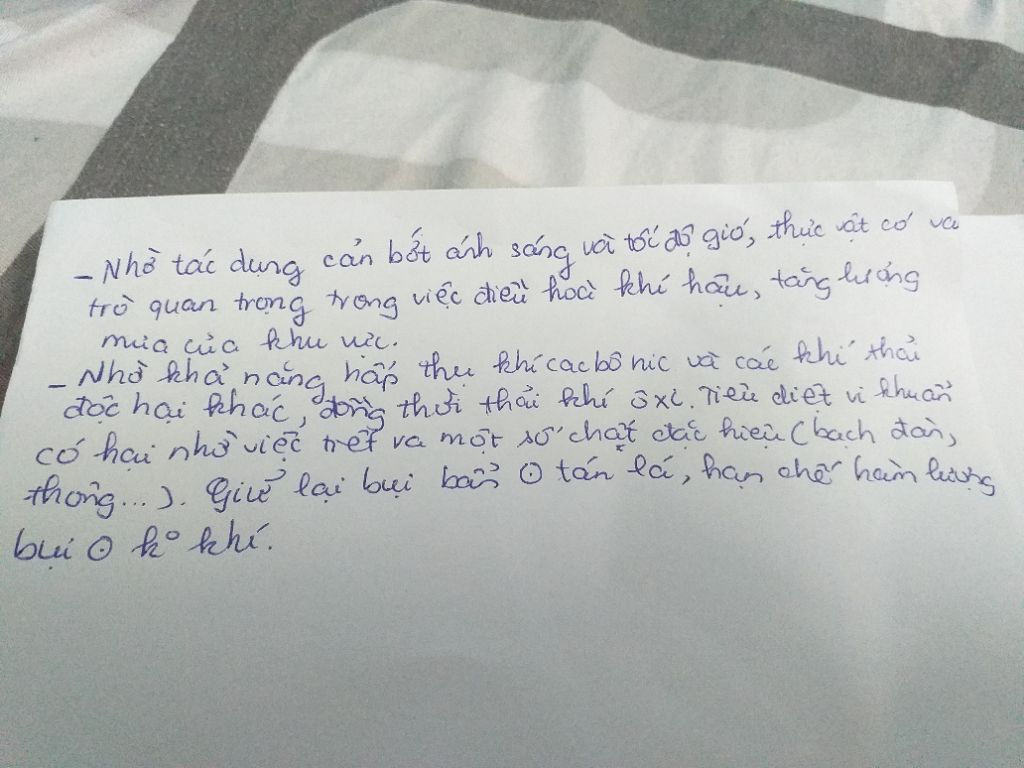 - Nhờ tác dụng cản bớt ánh sáng và tốc độ gió, thực vật có va
trò quan trọng trong việc điều hoà khí hậu, tăng lượng
mưa của khu vực.
- Nhờ khả năng hấp thụ khí cacbônic và các khí thải
độc hại khác, đồng thời thải khí ôxi. Tiêu diệt vi khuẩn
có hại nhờ việc tiết ra một số chất đặc hiệu (bạch đàn,
thông...). Giữ lại bụi bẩn ⊙ tán lá, hạn chế hàm lượng
bụi ⊙ k° khí.